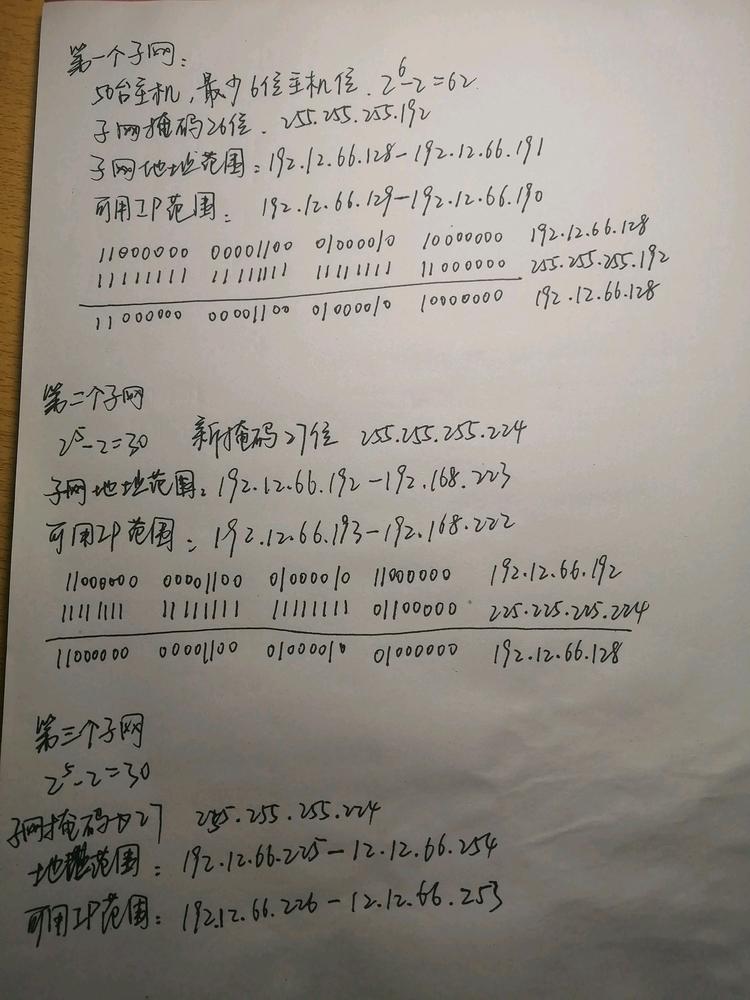 第一个子网：
50台主机，最少6位主机位. 2^6-2=62
子网掩码26位. 255.255.255.192
子网地址范围：192.12.66.128-192.12.66.191
可用IP范围： 192.12.66.129-192.12.66.190
11000000 00001100 01000010 10000000 192.12.66.128
11111111 11111111 11111111 11000000 255.255.255.192
11000000 00001100 01000010 10000000 192.12.66.128
第二个子网
2^5-2=30 新掩码27位 255.255.255.224
子网地址范围：192.12.66.192-192.168.223
可用IP范围：192.12.66.193-192.168.222
11000000 00001100 01000010 11000000 192.12.66.192
11111111 11111111 11111111 01100000 225.225.225.224
11000000 00001100 01000010 01000000 192.12.66.128
第三个子网
2^5-2=30
子网掩码为27 255.255.255.224
地址范围：192.12.66.225-12.12.66.254
可用IP范围：192.12.66.226-12.12.66.253